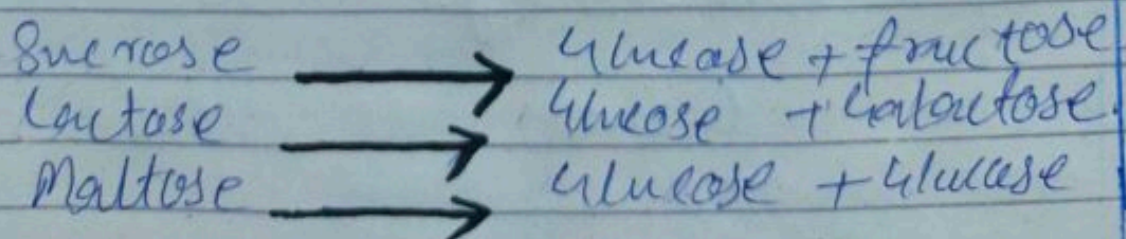 Sucrose → Glucose + fructose
Lactose → Glucose + Galactose.
Maltose → Glucose + Glucose